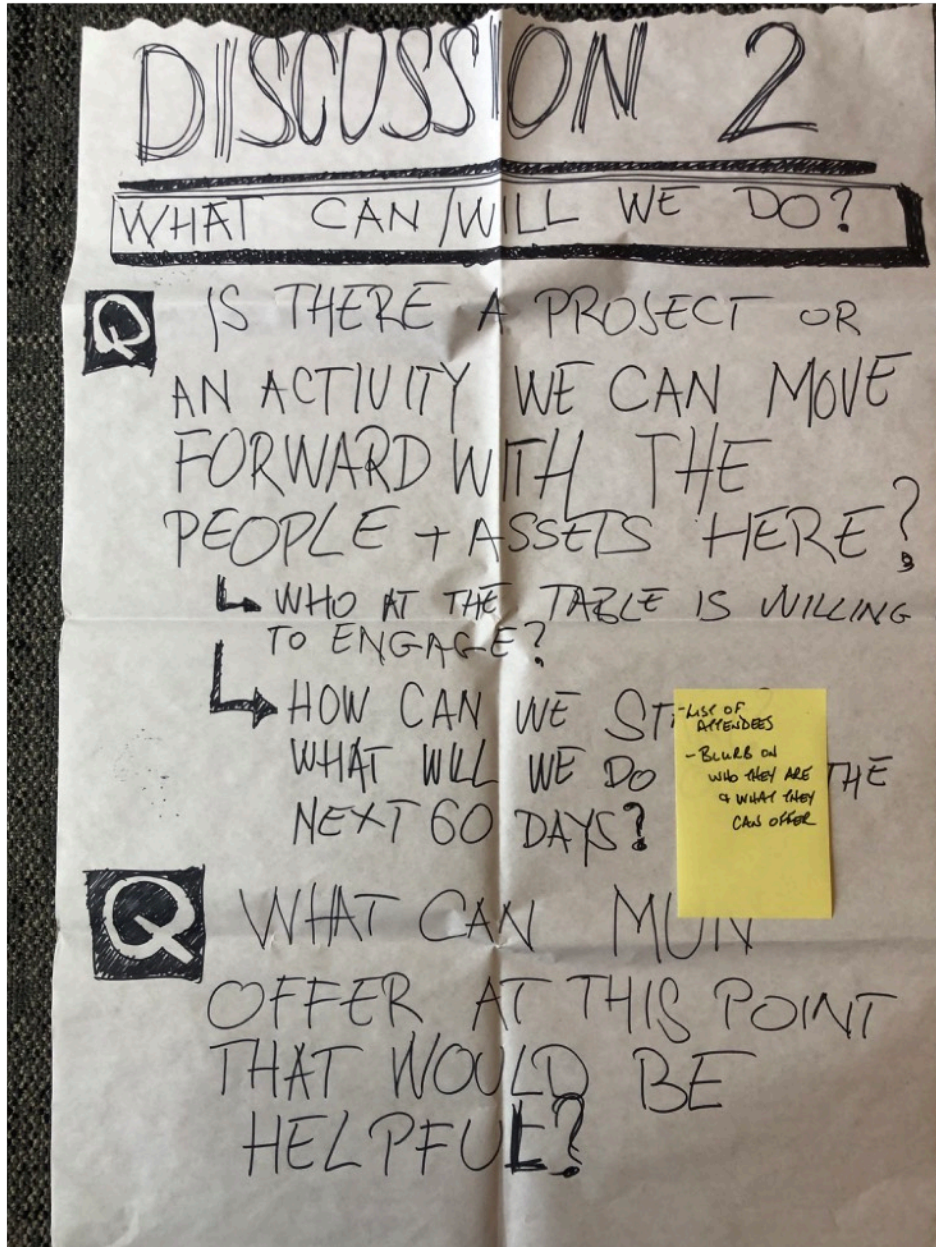 DISCUSSION 2
WHAT CAN/WILL WE DO?
Q IS THERE A PROJECT OR
AN ACTIVITY WE CAN MOVE
FORWARD WITH THE
PEOPLE + ASSETS HERE?
WHO AT THE TABLE IS WILLING
TO ENGAGE?
HOW CAN WE
WHAT WILL WE DO THE
NEXT 60 DAYS?
- LIST OF
ATTENDEES
- BLURB ON
WHO THEY ARE
& WHAT THEY
CAN OFFER
Q WHAT CAN MUN
OFFER AT THIS POINT
THAT WOULD BE
HELPFUL?